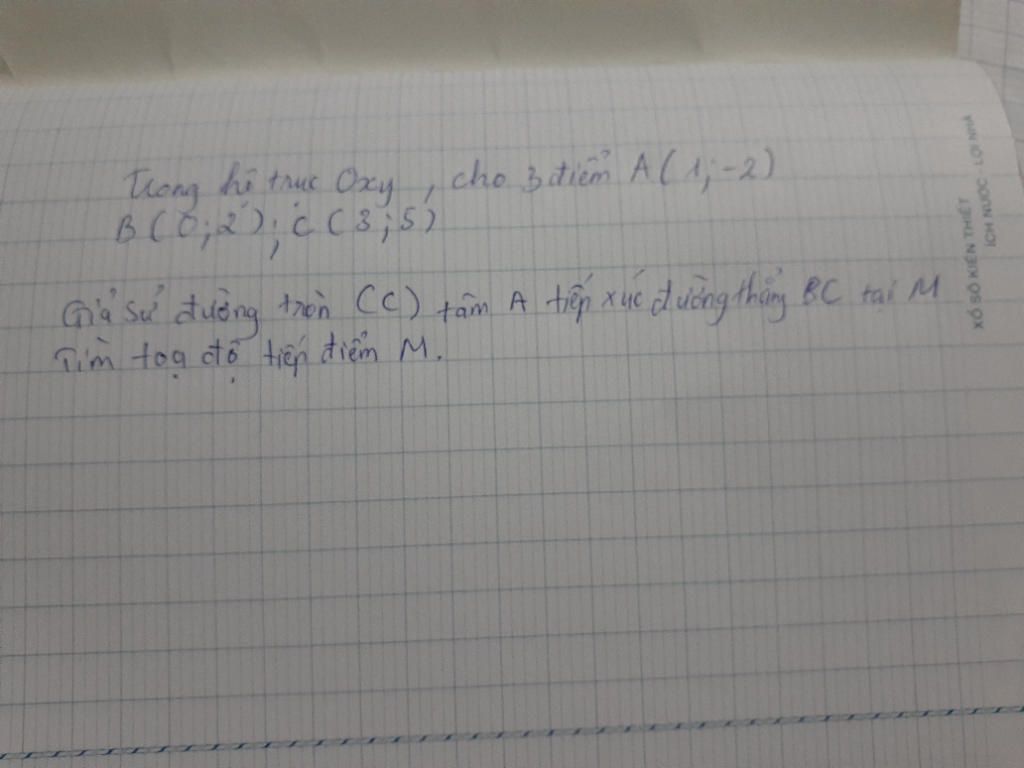 Trong hệ trục Oxy, cho 3 điểm A(1;-2)
B(0;2); C(3;5)
Giả sử đường tròn (C) tâm A tiếp xúc đường thẳng BC tại M
Tìm toạ độ tiếp điểm M.
XỔ SỐ KIẾN THIẾT
ÍCH NƯỚC - LỢI NHÀ